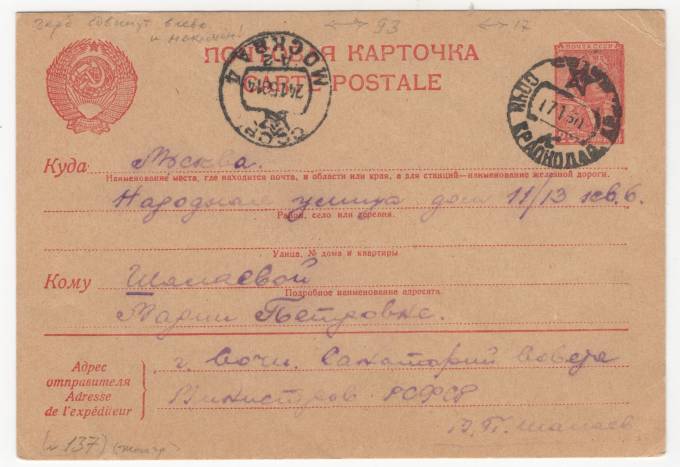 герб сдвинут влево
и наклонён!
93
17
ПОЧТОВАЯ КАРТОЧКА
CARTE POSTALE
ПОЧТА СССР
МОСКВА 4
СССР
СОЧИ
КРАСНОДАР
Куда Москва.
Наименование места, где находится почта, и области или края, а для станций—наименование железной дороги.
Народная улица дом 11/13 кв. 6.
Район, село или деревня.
Улица, № дома и квартиры
Кому Шалаевой
Подробное наименование адресата.
Марии Петровне.
Адрес
отправителя
Adresse
de l'expéditeur
г. Сочи. Санаторий Совета
Министров РСФСР
В. П. Шалаев
(№ 137)